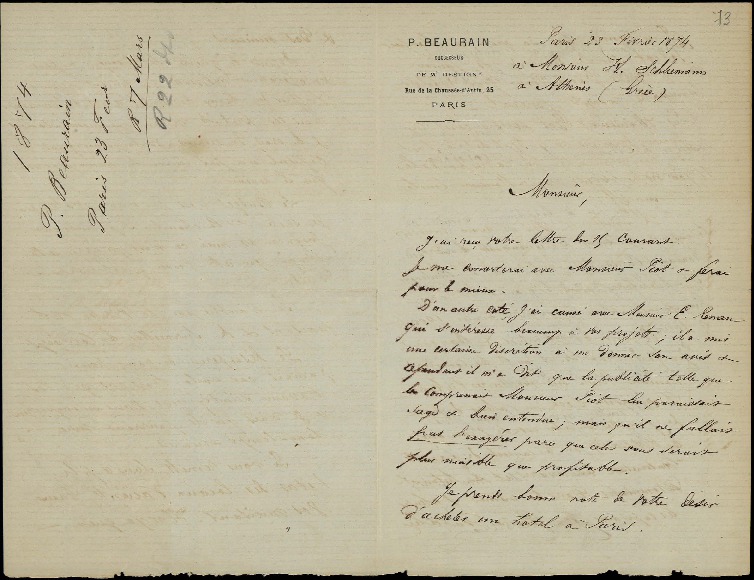 1874
P. Beaurain
Paris 23 Fevr
R 7 Mars
R 22 4
73
P. BEAURAIN
SUCCESSEUR
Rue de la Chaussée-d'Antin, 25
PARIS
Paris 23 Février 1874
à Monsieur H. Schliemann
à Athènes (Grèce)
Monsieur,
J'ai reçu votre lettre du 15 Courant.
Je me concerterai avec Monsieur Piot & ferai
pour le mieux.
D'un autre coté, J'ai causé avec Monsieur E. Renan
qui s'intéresse beaucoup à vos projets; il a mis
une certaine discretion à me donner son avis
cependant il m'a dit que la publicité telle que
la comprenait Monsieur Piot lui paraissait
sage & bien entendue; mais qu'il ne fallait
pas l'exagérer parce que cela vous serait
plus nuisible que profitable.
Je prends bonne note de votre desir
d'acheter un hotel à Paris.